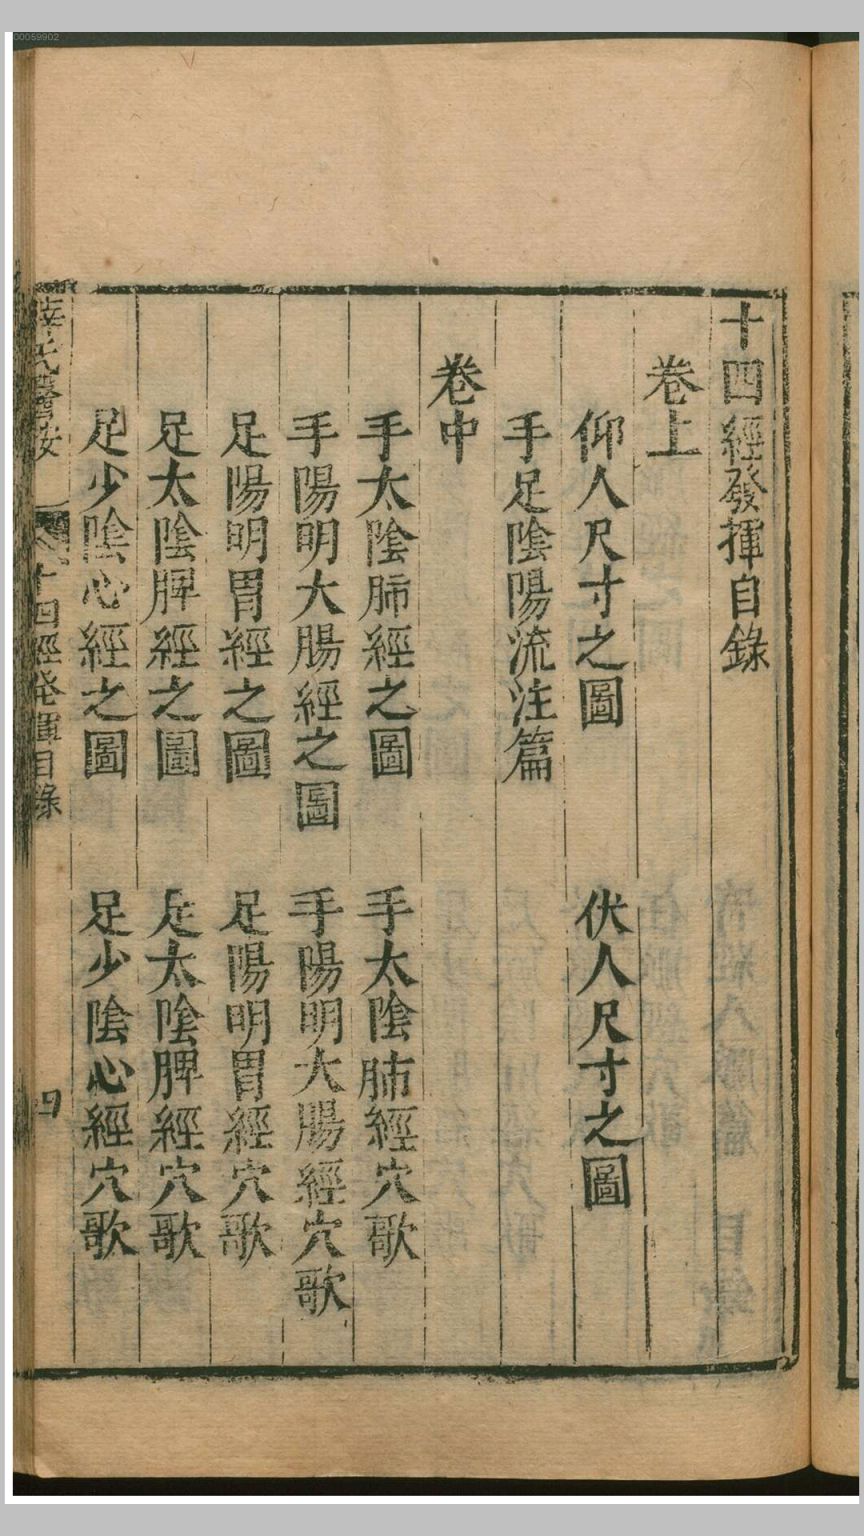 00059902
十四經發揮目錄
卷上
仰人尺寸之圖　伏人尺寸之圖
手足陰陽流注篇
卷中
手太陰肺經之圖　手太陰肺經穴歌
手陽明大腸經之圖　手陽明大腸經穴歌
足陽明胃經之圖　足陽明胃經穴歌
足太陰脾經之圖　足太陰脾經穴歌
足少陰心經之圖　足少陰心經穴歌
十四經發揮目錄